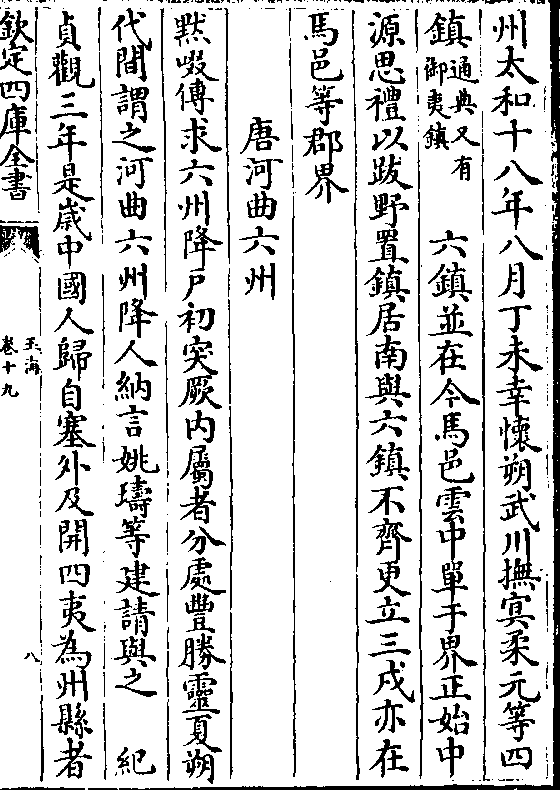 州太和十八年八月丁未幸懷朔武川撫㝠柔元等四
鎮通典又有
御夷鎮
六鎮並在今馬邑雲中單于界正始中
源思禮以跋野置鎮居南與六鎮不齊更立三戍亦在
馬邑等郡界
唐河曲六州
黙啜傳求六州降戶初突厥内屬者分處豐勝靈夏朔
代間謂之河曲六州降人納言姚璹等建請與之 紀
貞觀三年是嵗中國人歸自塞外及開四夷為州縣者
欽定四庫全書
玉海
卷十九
八